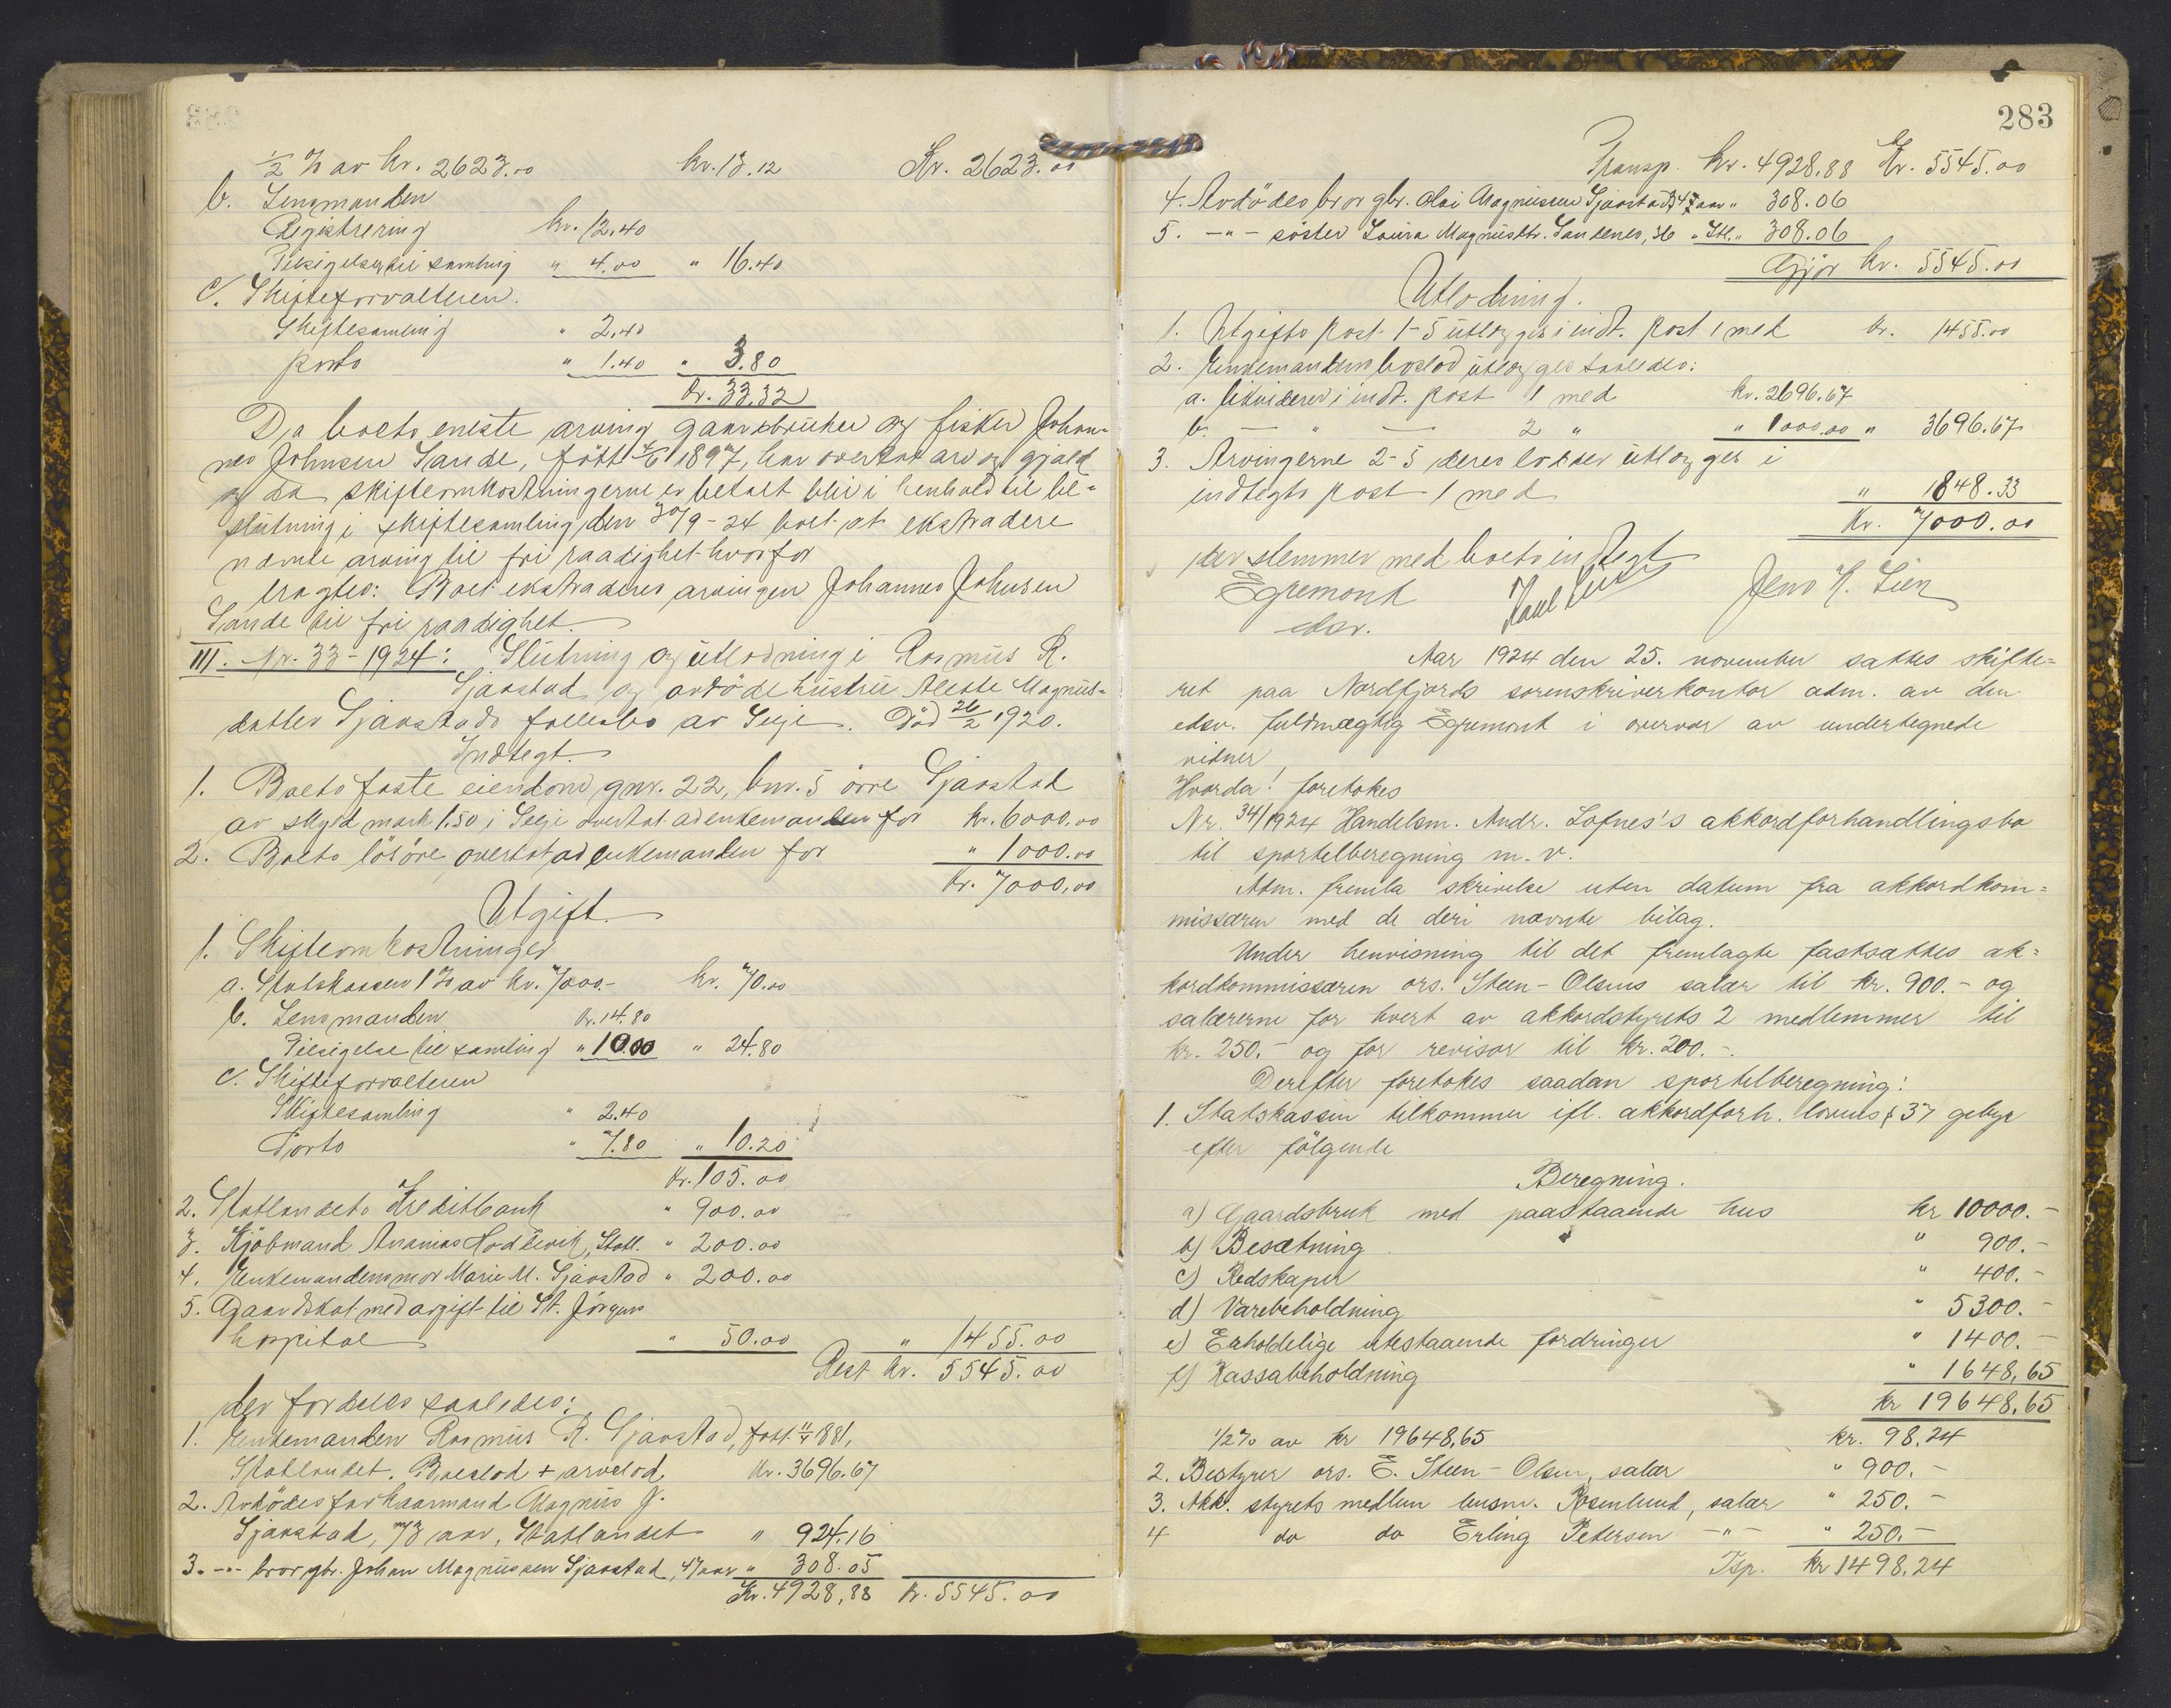 ½ % av kr. 2623.00 kr. 13.12 Kr. 2623.00
b. Lensmanden
Registrering kr. 12.40
Tilsigelser til samling " 4.00 " 16.40
c. Skifteforvalteren.
Skiftesamling " 2.40
porto " 1.40 " 3.80
kr. 33.32
Da boets eneste arving gaardbruker og fisker Johan-
nes Johnsen Sande, født 4/6 1897, har overtat arv og gjæld
og da skifteomkostningerne er betalt blir i henhold til be-
slutning i skiftesamling den 30/9-24 boet at ekstradere
nævnte arving til fri raadighet hvorfor
eragtes: Boet ekstraderes arvingen Johannes Johnsen
Sande til fri raadighet.
III. Nr. 33-1924: Slutning og utlodning i Rasmus R.
Sjaastad og avdøde hustru Aleste Magnus-
datter Sjaastads fællesbo av Selje. Død 26/2 1920.
Indtegt.
1. Boets faste eiendom, gnr. 22, bnr. 5 övre Sjaastad
av skyld mark 1.50 i Selje overtat av enkemanden for kr. 6000.00
2. Boets lösöre overtat av enkemanden for " 1000.00
kr. 7000.00
Utgift.
1. Skifteomkostninger
a. Statskassen 1 % av kr. 7000.- kr. 70.00
b. Lensmanden kr. 14.80
Tilsigelse til samling " 10.00 " 24.80
c. Skifteforvalteren
Skiftesamling " 2.40
Porto " 7.80 " 10.20
kr. 105.00
2. Statlandets Kreditbank " 900.00
3. Kjöbmand Ananias Hoddevik, Statl. " 200.00
4. Enkemandens mor Marie M. Sjaastad " 200.00
5. Gaardskat med avgift til St. Jörgens
hospital " 50.00 " 1455.00
Rest kr. 5545.00
der fordeles saaledes:
1. Enkemanden Rasmus R. Sjaastad, født 11/4 1881,
Statlandet. Boeslod + arvelod kr. 3696.67
2. Avdødes far kaarmand Magnus J.
Sjaastad, 73 aar, Statlandet " 924.16
3. -"- bror gbr. Johan Magnussen Sjaastad, 47 aar " 308.05
Kr. 4928,88 kr. 5545.00
283
Transp. kr. 4928.88 Kr. 5545.00
4. Avdödes bror gbr. Magnussen Sjaastad, aar " 308.06
5. -"- söster Lovisa Magnusdtr. Sandenes, 36 " Stl. " 308.06
Gjör kr. 5545.00
Utlodning.
1. Utgifts post 1-5 utlægges i indt. post 1 med kr. 1455.00
2. Enkemandens boslod utlægges saaledes:
a. likviderer i indt. post 1 med kr. 2696.67
b. — " — 2 " " 1000.00 " 3696.67
3. Arvingerne 2-5 deres lodder utlægges i
indtegts post 1 med " 1848.33
Kr. 7000.00
der stemmer med boets indtegt
Egremont Jens H. Lien
edsv.
Aar 1924 den 25. november sattes skifte=
ret paa Nordfjords sorenskriverkontor adm. av den
edsv. fuldmægtig Egremont i overvær av undertegnede
vidner
Hvorda! foretokes
Nr. 34/1924 Handelsm. Andr. Lofnes's akkordforhandlingsbo
til sportelberegning m.v.
Adm. fremla skrivelse uten datum fra akkordkom=
missæren med de deri nævnte bilag.
Under henvisning til det fremlagte fastsættes ak=
kordkommissæren ors. Steen-Olsens salær til kr. 900.- og
salærerne for hvert av akkordstyrets 2 medlemmer til
kr. 250.- og for revisor til kr. 200.-.
Derefter foretokes saadan sportelberegning:
1. Statskassen tilkommer ifl. akkordforh. lovens § 37 gebyr
efter følgende
Beregning.
a) Gaardsbruk med paastaaende hus kr 10000.-
b) Besætning " 900.-
c) Redskaper " 400.-
d) Varebeholdning " 5300.-
e) Erholdelige utestaaende fordringer " 1400.-
f) Kassabeholdning " 1648,65
kr 19648,65
1/2 % av kr 19648,65 kr. 98,24
2. Bestyrer ors. E. Steen-Olsen, salær " 900.-
3. Akk. styrets medlem Rosenlund, salær " 250.-
4 do do Erling Petersen -"- " 250.-
Tsp. kr 1498,24